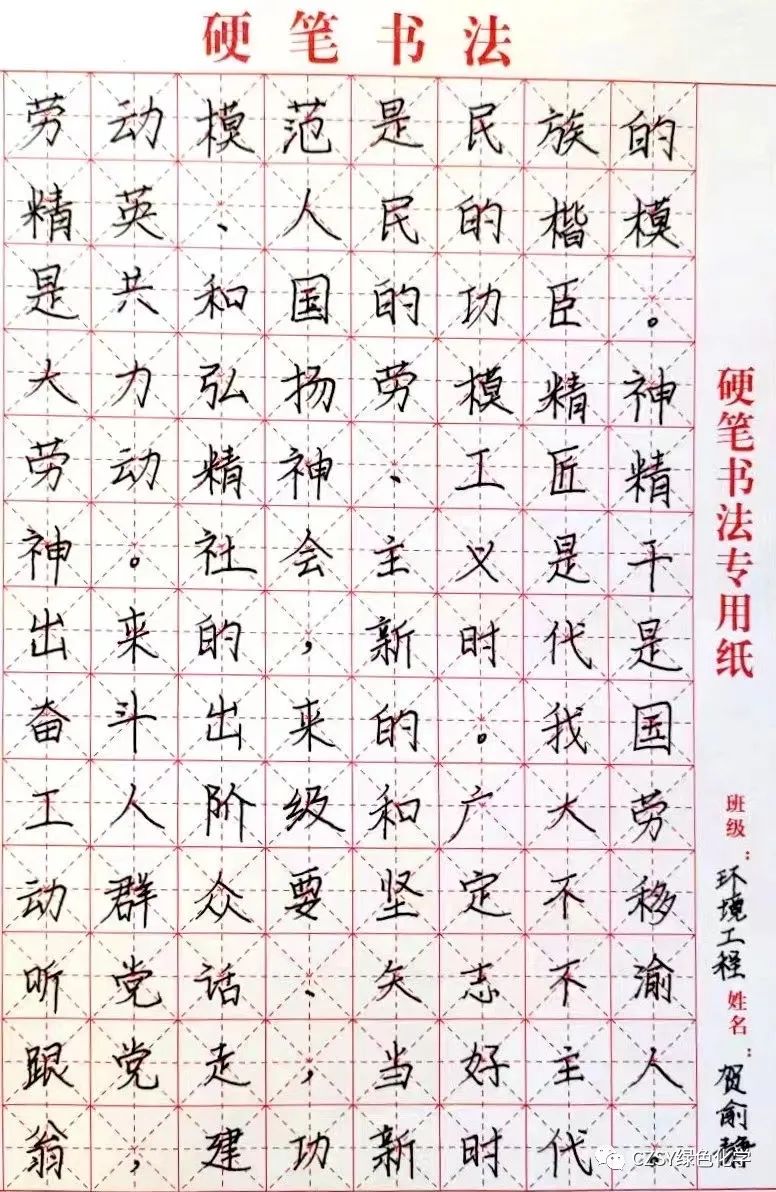 硬笔书法
劳动模范是民族的
精英、人民的楷模
是共和国的功臣。
大力弘扬劳模精神
劳动精神、工匠精
神。社会主义是干
出来的,新时代是
奋斗出来的。我国
工人阶级和广大劳
动群众要坚定不移
听党话、矢志不渝
跟党走,当好主人
翁,建功新时代。
硬笔书法专用纸
班级:环境工程 姓名:贺俞
CZSY绿色化学